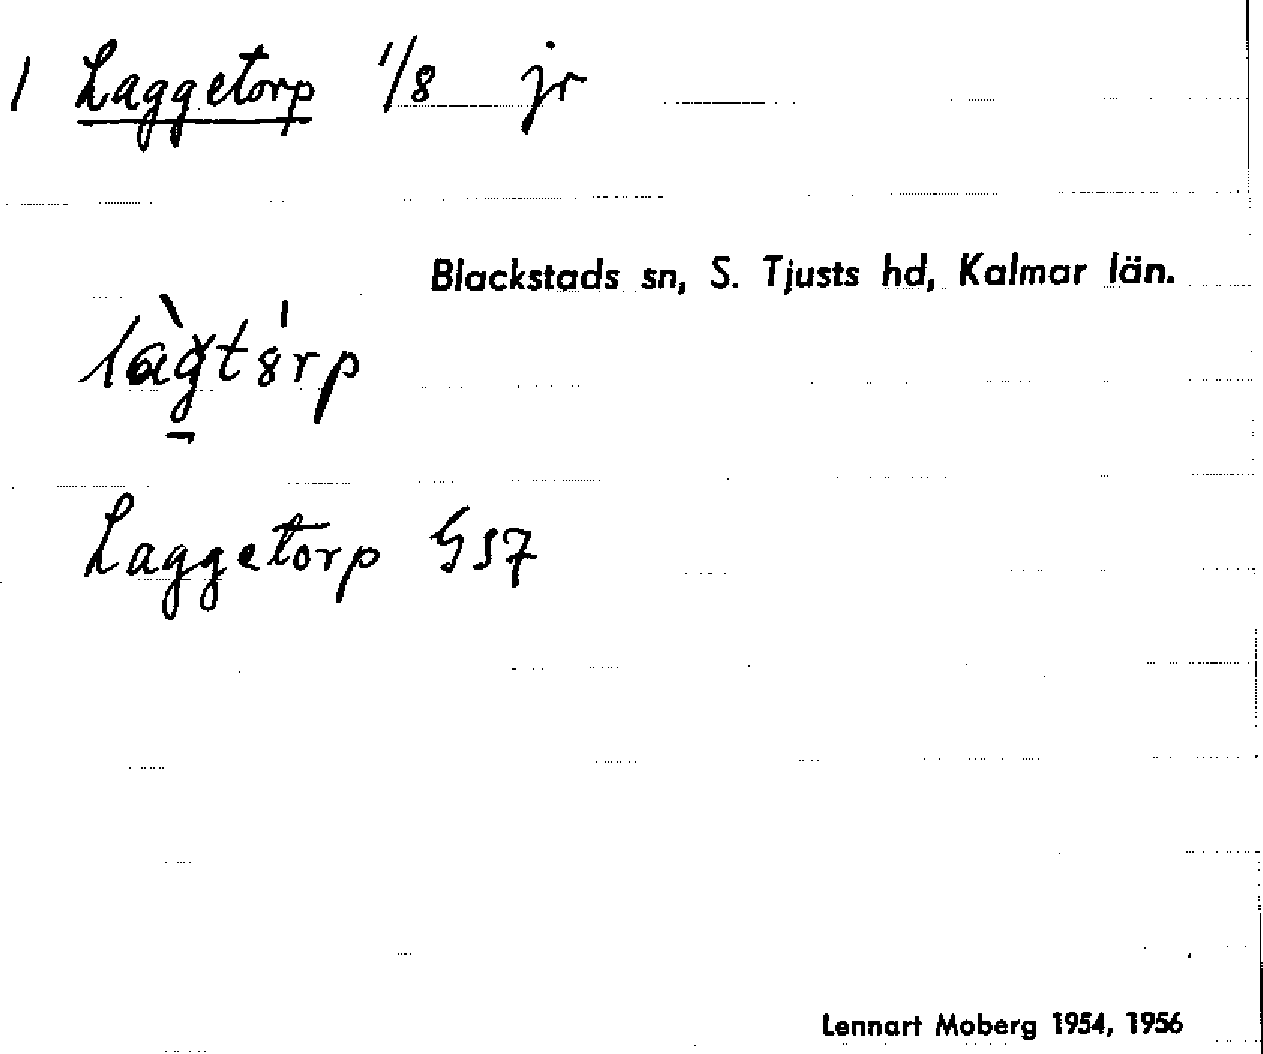 1 Laggetorp 1/8 jr
Blackstads sn, S. Tjusts hd, Kalmar län.
Laggetorp G57
Lennart Moberg 1954, 1956